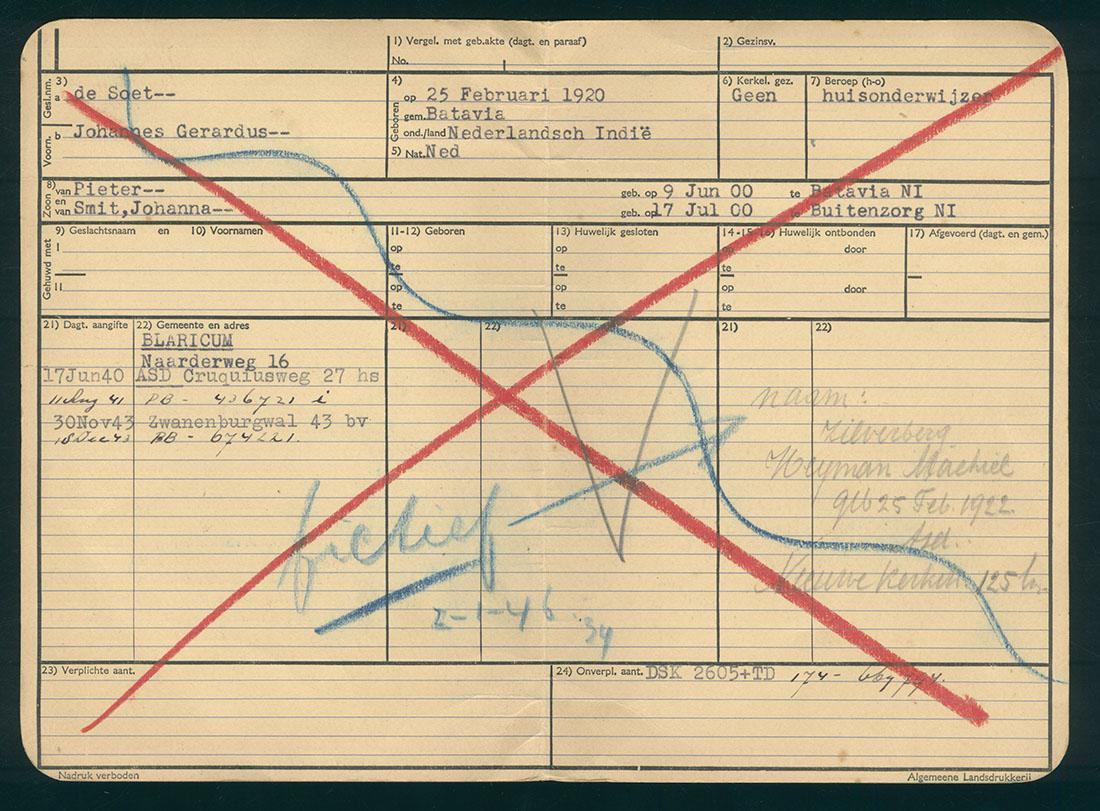 1) Vergel. met geb.akte (dagt. en paraaf)
No.
2) Gezinsv.
Gesl.nm. 3) a de Soet--
Voorn. b Johannes Gerardus--
4) Geboren
op 25 Februari 1920
gem. Batavia
ond./land Nederlandsch Indië
5) Nat. Ned
6) Kerkel. gez.
Geen
7) Beroep (h-o)
huisonderwijzer
8) Zoon van Pieter-- geb. op 9 Jun 00 te Batavia NI
en van Smit,Johanna-- geb. op 17 Jul 00 te Buitenzorg NI
Gehuwd met
9) Geslachtsnaam en 10) Voornamen
I
II
11-12) Geboren
op
te
op
te
13) Huwelijk gesloten
op
te
op
te
14-15-16) Huwelijk ontbonden
op door
te
op door
te
17) Afgevoerd (dagt. en gem.)
21) Dagt. aangifte 22) Gemeente en adres
21) 22)
21) 22)
BLARICUM
Naarderweg 16
17Jun40 ASD Cruquiusweg 27 hs
11 Aug 41 PB - 436721 i
30Nov43 Zwanenburgwal 43 bv
Dec 43 PB - 674221.
fictief
2-1-46
naam:
Zilverberg
Heyman Machiel
geb 25 Feb. 1922
Asd.
Nieuwe Kerkstr. 125
23) Verplichte aant.
24) Onverpl. aant. DSK 2605+TD 174-
Nadruk verboden
Algemeene Landsdrukkerij